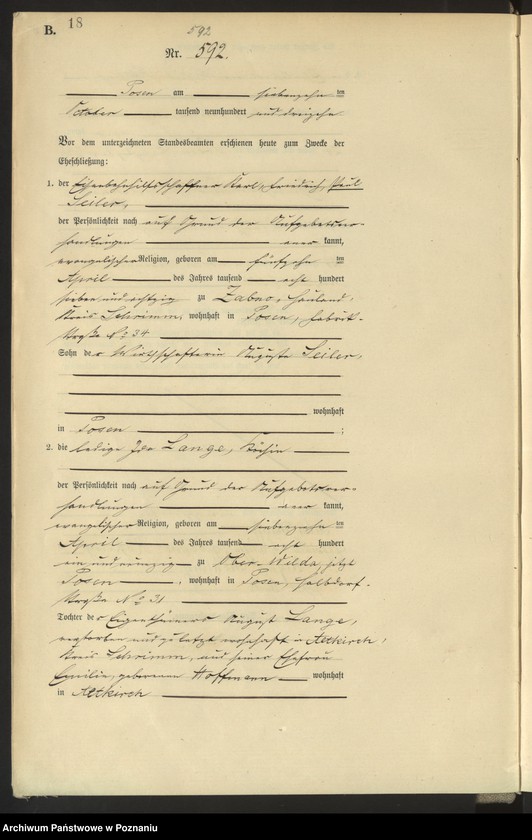 B. 18
592
Nr. 592.
Posen am siebenzehn ten
October tausend neunhundert und dreizehn
Vor dem unterzeichneten Standesbeamten erschienen heute zum Zwecke der
Eheschließung:
1. der Eisenbahnhilfsschaffner Karl, Friedrich, Paul
Seiler,
der Persönlichkeit nach auf Grund der Aufgebotsver-
handlungen aner kannt,
evangelischer Religion, geboren am fünfzehn ten
April des Jahres tausend acht hundert
sieben und achtzig zu Zabno, Hauland,
Kreis Schrimm, wohnhaft in Posen, Fabrik-
straße No 34
Sohn der Wirthschafterin Auguste Seiler,
wohnhaft
in Posen ;
2. die ledige Ida Lange, Köchin
der Persönlichkeit nach auf Grund der Aufgebotsver-
handlungen aner kannt,
evangelischer Religion, geboren am siebenzehn ten
April des Jahres tausend acht hundert
ein und neunzig zu Ober-Wilda, jetzt
Posen, wohnhaft in Posen, Halbdorf-
straße No 31
Tochter des Eigenthümers August Lange,
verstorben und zuletzt wohnhaft in Altkirch,
Kreis Schrimm, und seiner Ehefrau
Emilie, geborenen Hoffmann wohnhaft
in Altkirch
Archiwum Państwowe w Poznaniu